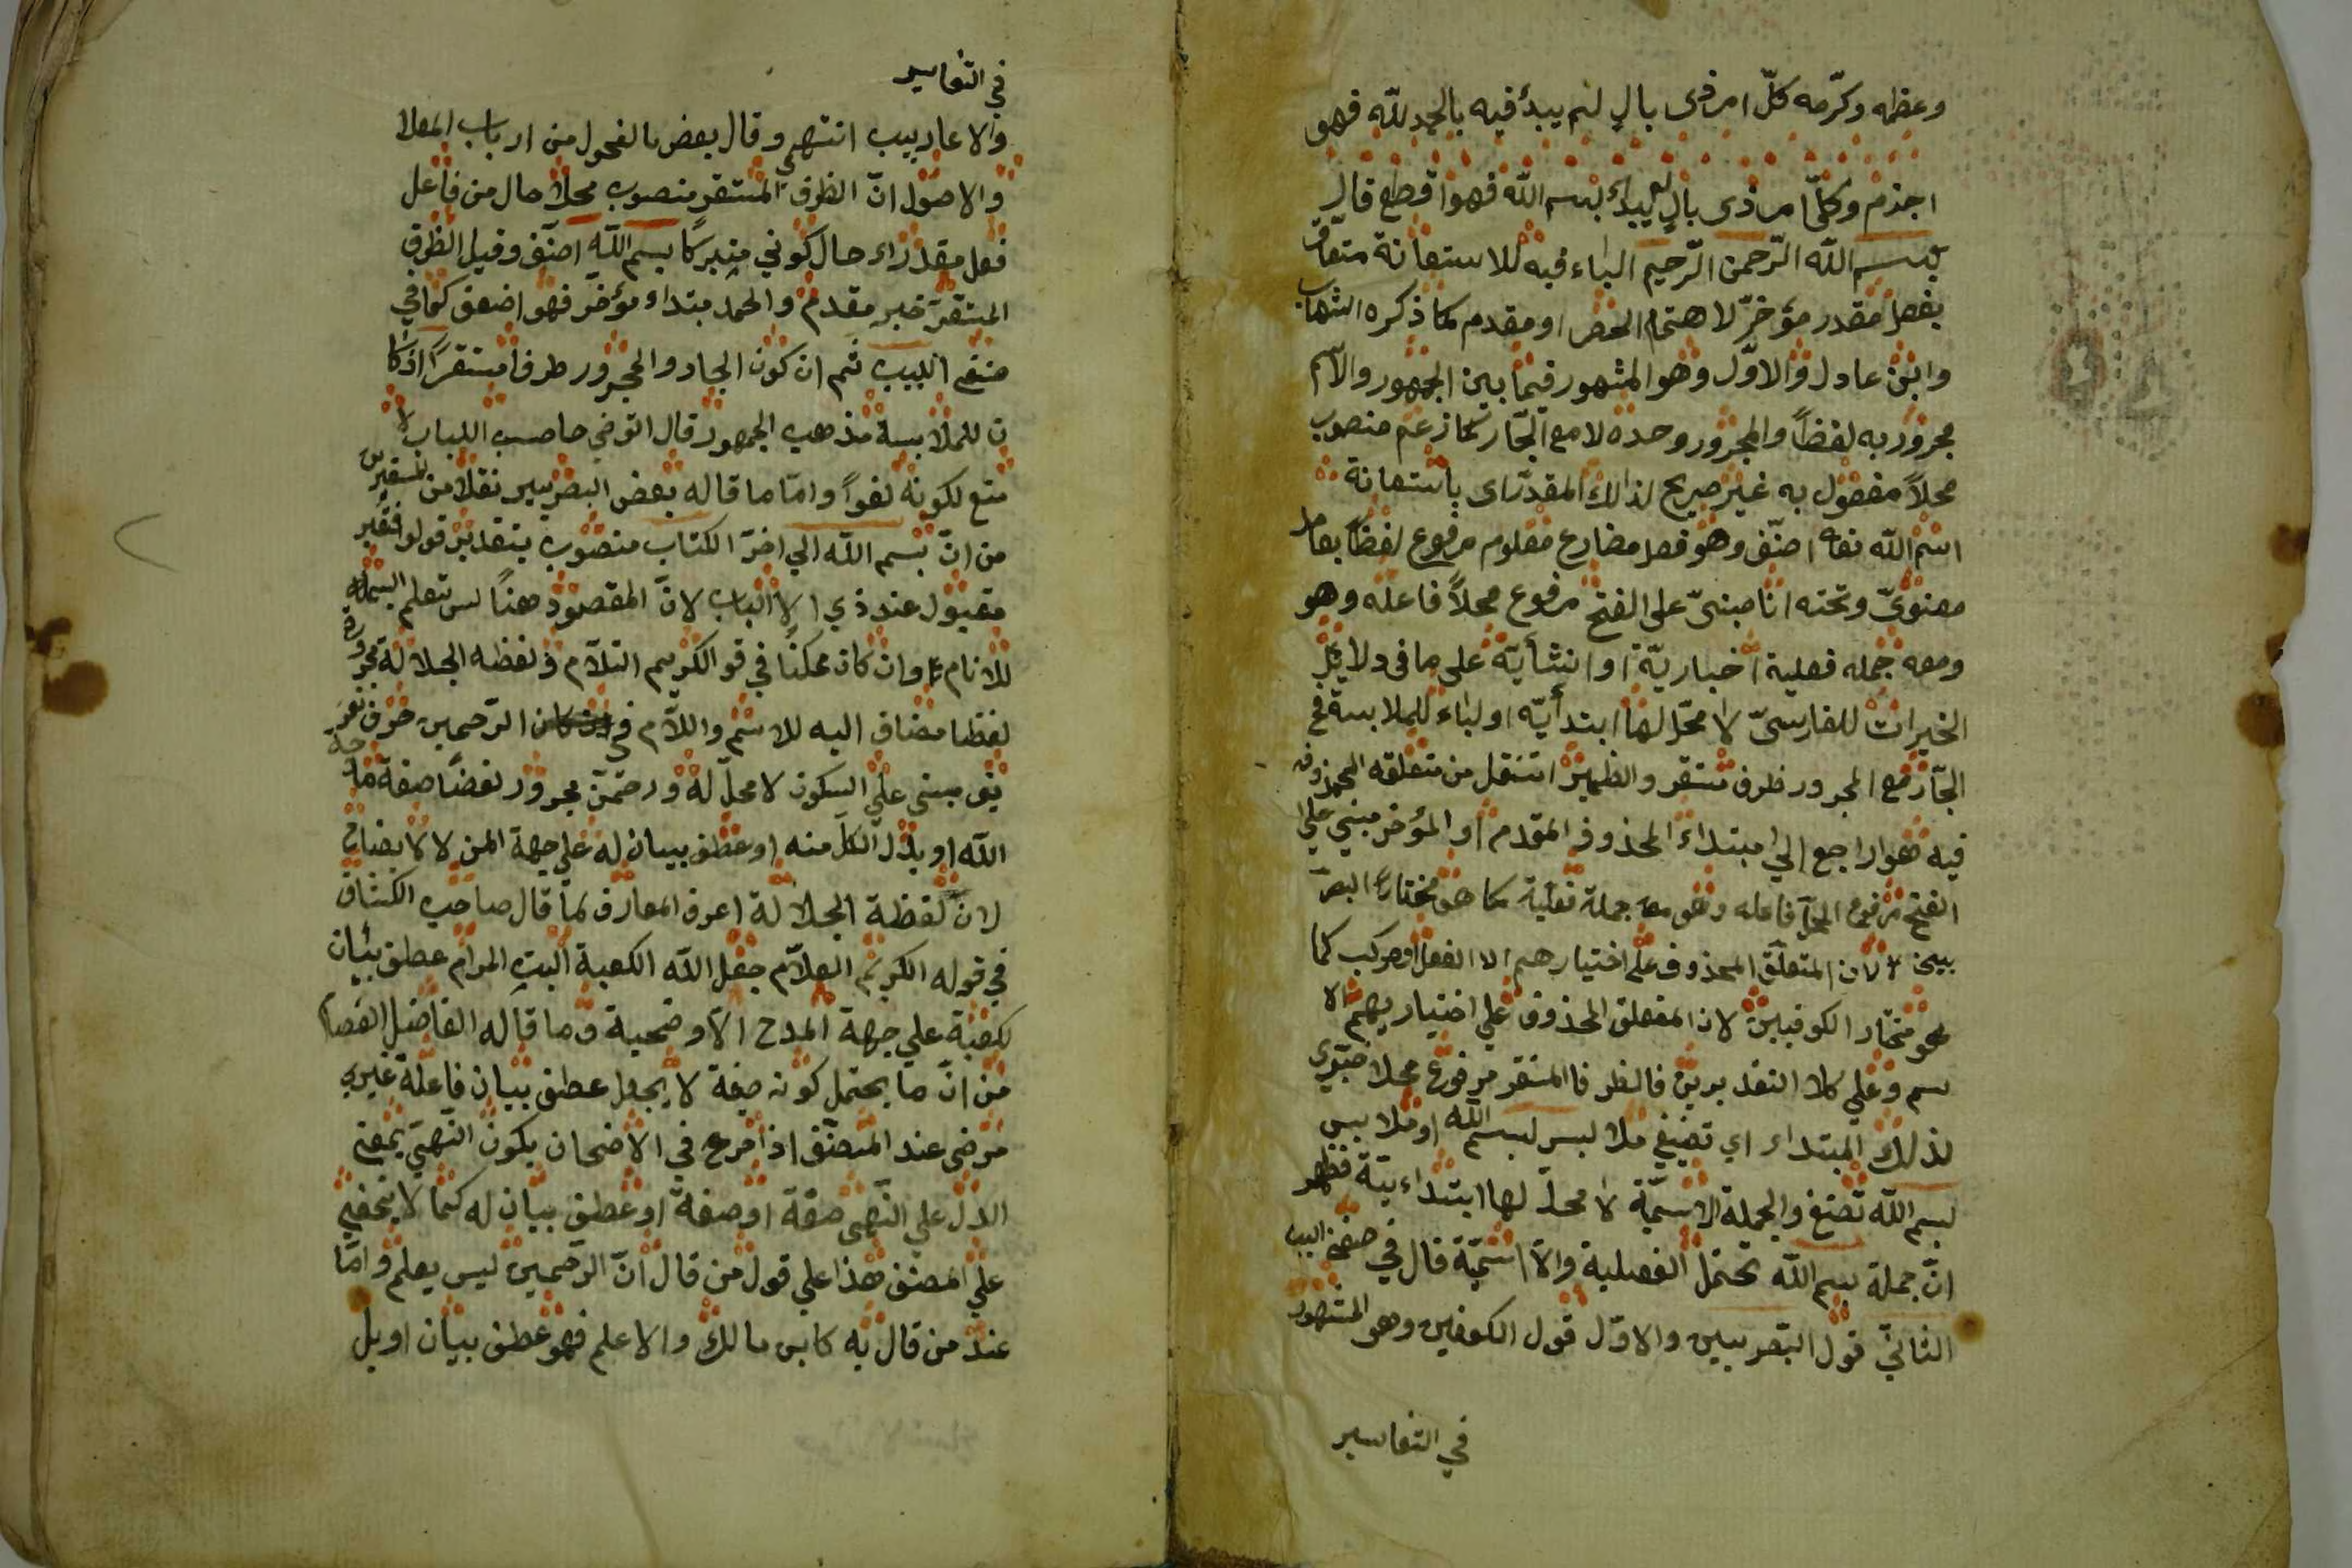 وعظمه وكرّمه كلّ امر ذى بال لم يبدأ فيه بالحمد لله فهو
اجذم وكلّ امر ذى بال لم يبدأ ببسم الله فهو اقطع قال
بسم الله الرّحمن الرّحيم الباء فيه للاستعانة متعلق
بفعل مقدر مؤخرّ لاهتمام الحصر او مقدم كما ذكره الشهاب
وابن عادل والاوّل وهو المشهور فيما بين الجمهور والاسم
مجرور به لفظاً والمجرور وحده لا مع الجّار كما زعم منصوب
محلاً مفعول به غير صريح لذالك المقدّر اى باستعانة
اسم الله تعا اصنّف وهو فعل مضارع معلوم مرفوع لفظاً بعامل
معنوىّ وتحته انا مبنىّ على الفتح مرفوع محلاً فاعله وهو
ومعه جمله فعلية اخباريّة او انشأيّة على ما فى دلايل
الخيرات للفارسىّ لا محّل لها ابتدأيّه او لباء للملابسة فح
الجّار مع المجرور ظرف مستقر والظمير انتقل من متعلقه المحذوف
فيه هو اراجع الي مبتداء المحذوف المقدم او المؤخر مبني علي
الفتح مرفوع المحل فاعله وهو معه جملة فعلية كما هو مختار البصر
بيين لان المتعلق المحذوف على اختيارهم الا الفعل او مركب كما
هو مختار الكوفيين لان المتعلق المحذوف علي اختيار يهم الا
سم وعلي كلا التقديرين فالظرف المستقر مرفوع محلا خبر
لذلك المبتداء اي تصنيفي ملابس لبسم الله او ملابس
بسم الله تصنيفي والجملة الاسميّة لا محلّ لها ابتداءيّة فظهر
انّ جملة بسم الله تحتمل الفعلية والا اسميّة قال في مغني اللبيب
الثاني قول البصريين والاوّل قول الكوفين وهو المشهور
في التفاسير
في التفاسير
والاعاريب انتهى وقال بعض الفحول من ارباب المعلا
والاصول انّ الظرف المستقر منصوب محلاً حال من فاعل
فعل مقدر اء حال كوني متبركا بسم الله اصنّف وقيل الظرف
المستقرّ خبر مقدم والحمد مبتداء مؤخر فهو اضعف كما في
مغني اللبيب ثم ان كون الجار والمجرور ظرفا مستقراً اذ كا
ن للملابسة مذهب الجمهور قال التوضي صاحب اللباب لا
منع لكونه لغواً وامّا ما قاله بعض البصريين نقلا من
من انّ بسم الله الي اخرّ الكتاب منصوب بتقدير قولوا فغير
مقبول عند ذي الالباب لانّ المقصود هناً ليس تعلم البسملة
للانام وان كان ممكناً في قو الكريم السّلام ولفظه الجلالة مجرورة
لفظا مضاف اليه للاسم واللّام في الرّحمن حرف تعر
يف مبنى علي السكون لا محلّ له ورحمن مجرور لفضاً صفة
الله او بدل الكلّ منه او عطف بيان له علي جهة المدح لا للايضاح
لانّ لفظة الجلالة اعرف المعارف لما قال صاحب الكشاف
في قوله الكريم العلاّم جعل الله الكعبة البيت الحرام عطف بيان
لكعبة علي جهة المدح الا وضحية وما قاله الفاضل العصام
من انّ ما يحتمل كونه صفة لا يجعل عطف بيان فاعلّه غير
مرضى عند المصنّف اذا مرع في الاضحان يكون النّهي بمعني
الدال علي النّهى صفة او صفة او عطف بيان له كما لا يخفي
علي المصنف هذا علي قول من قال انّ الرّحمن ليس بعلم وامّا
عند من قال به كابن مالك والاعلم فهو عطف بيان او بدل